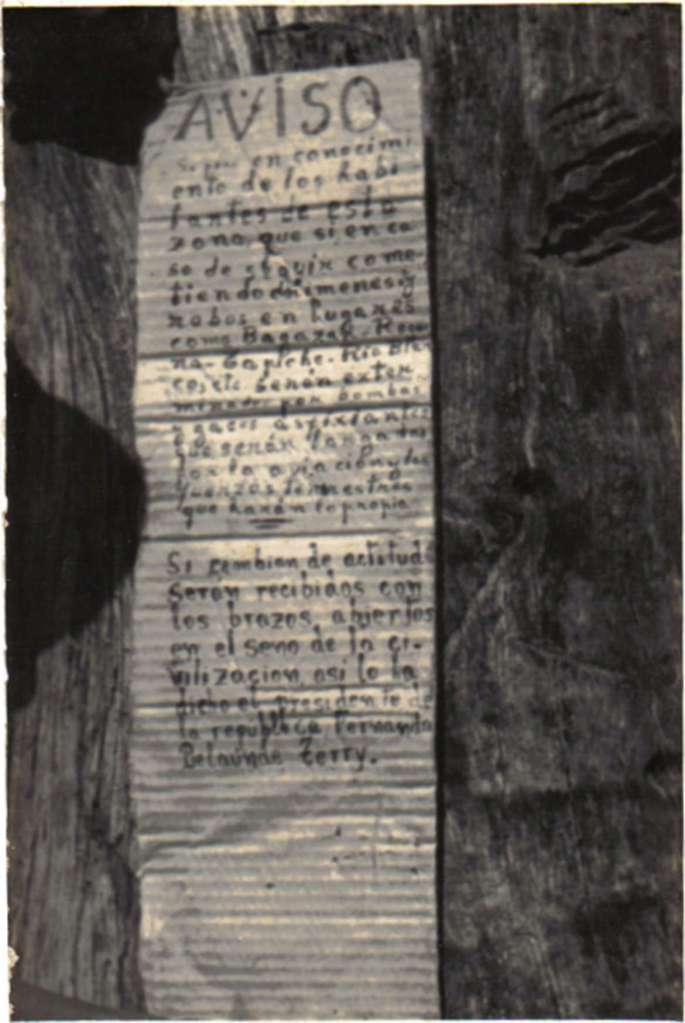 AVISO
Se pone en conocimi
ento de los habi
tantes de esta
zona que si en ca
so de seguir come-
tiendo crimenes y
robos en lugares
como Bagazan. Reque
na. Gapiche. Rio Blan
co, etc. serán exter
minados por bombas
y gases asfixiantes
que serán lanzadas
por la aviacion y las
fuerzas terrestres
que harán lo propio
Si cambian de actitud
serán recibidos con
los brazos abiertos
en el seno de la ci-
vilizacion asi lo ha
dicho el presidente de
la republica Fernando
Belaunde Terry.